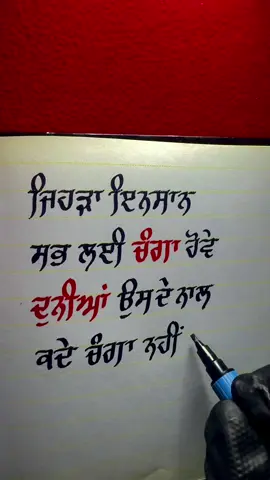 ਜਿਹੜਾ ਇਨਸਾਨ
ਸਭ ਲਈ ਚੰਗਾ ਹੋਵੇ
ਦੁਨੀਆਂ ਉਸ ਦੇ ਨਾਲ
ਕਦੇ ਚੰਗਾ ਨਹੀਂ